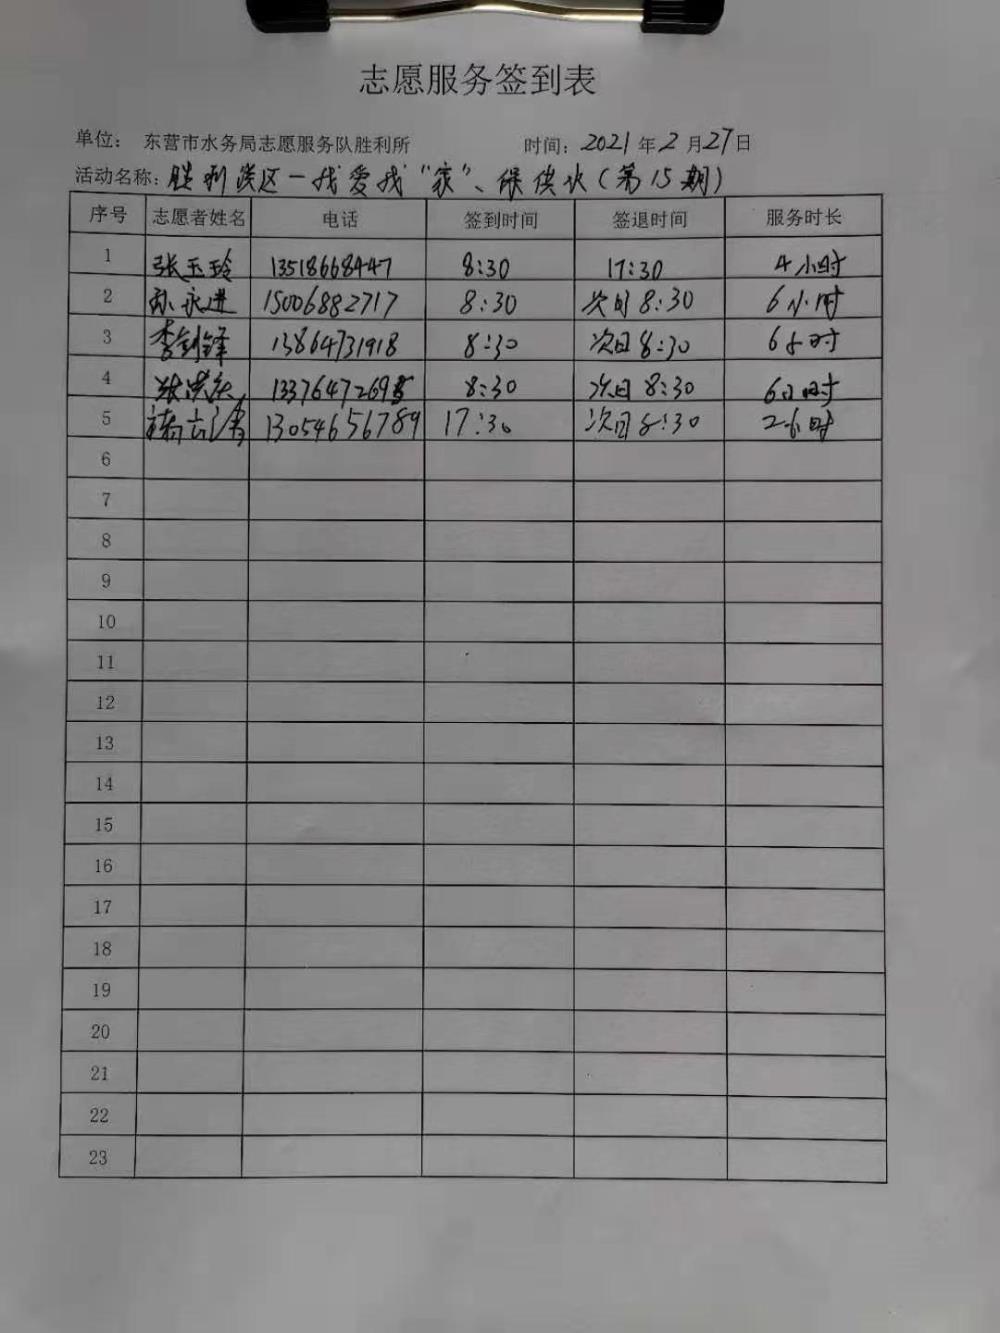 志愿服务签到表
单位： 东营市水务局志愿服务队胜利所 时间：2021年2月27日
活动名称：胜利湾区一我爱我"家"、保供水（第15期）
序号 志愿者姓名 电话 签到时间 签退时间 服务时长
1 张玉玲 13518668447 8:30 17:30 4小时
2 孙永进 15006882717 8:30 次日8:30 6小时
3 李剑锋 13864731918 8:30 次日8:30 6小时
4 张洪 1337647269 8:30 次日8:30 6小时
5 13054656789 17:30 次日8:30 2小时
6
7
8
9
10
11
12
13
14
15
16
17
18
19
20
21
22
23